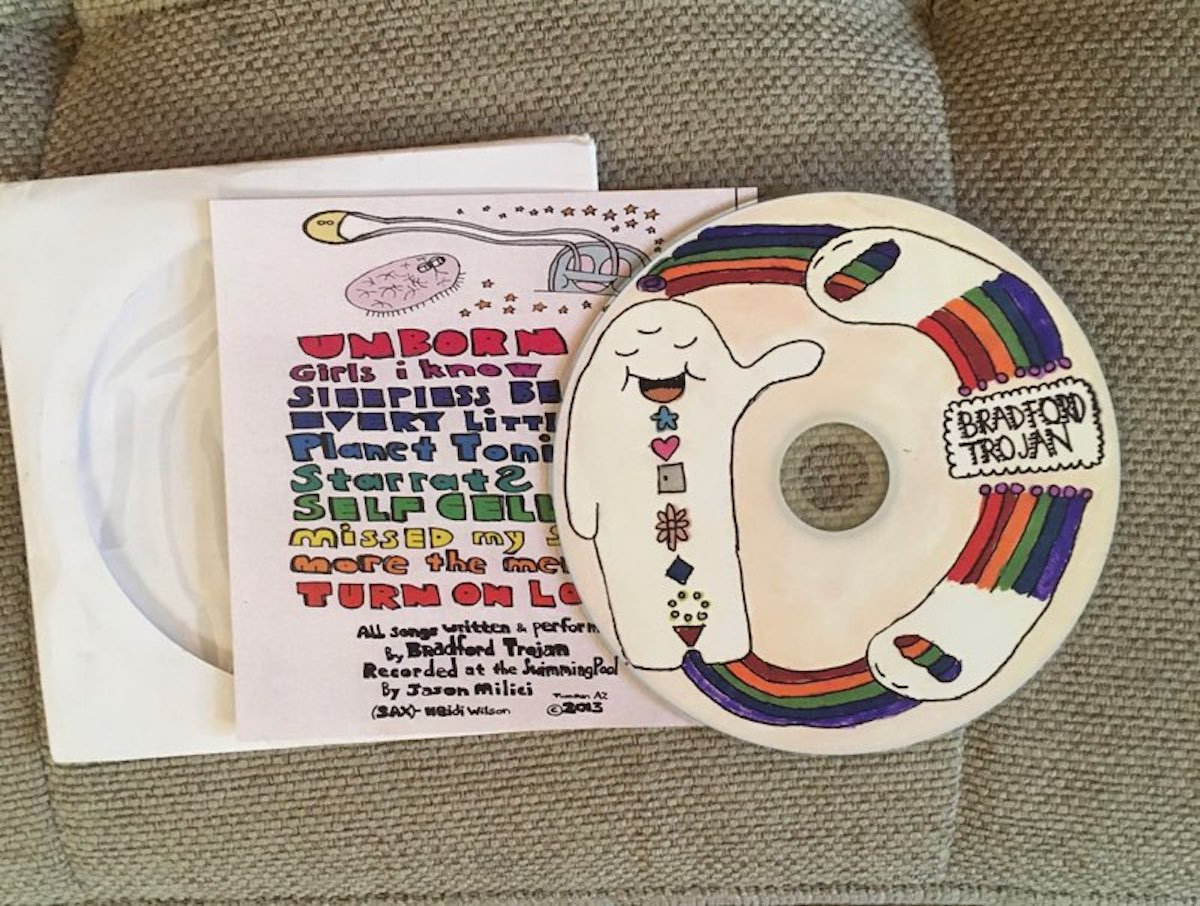 UNBORN
Girls i know
SLEEPLESS BE
EVERY Littl
Planet Toni
StarratS
SELF CELL
missED my S
more the mer
TURN ON LO
All songs written & perform
By Bradford Trojan
Recorded at the SwimmingPool
By Jason Milici
Tucson AZ
(SAX)- Heidi Wilson ©2013
BRADFORD
TROJAN